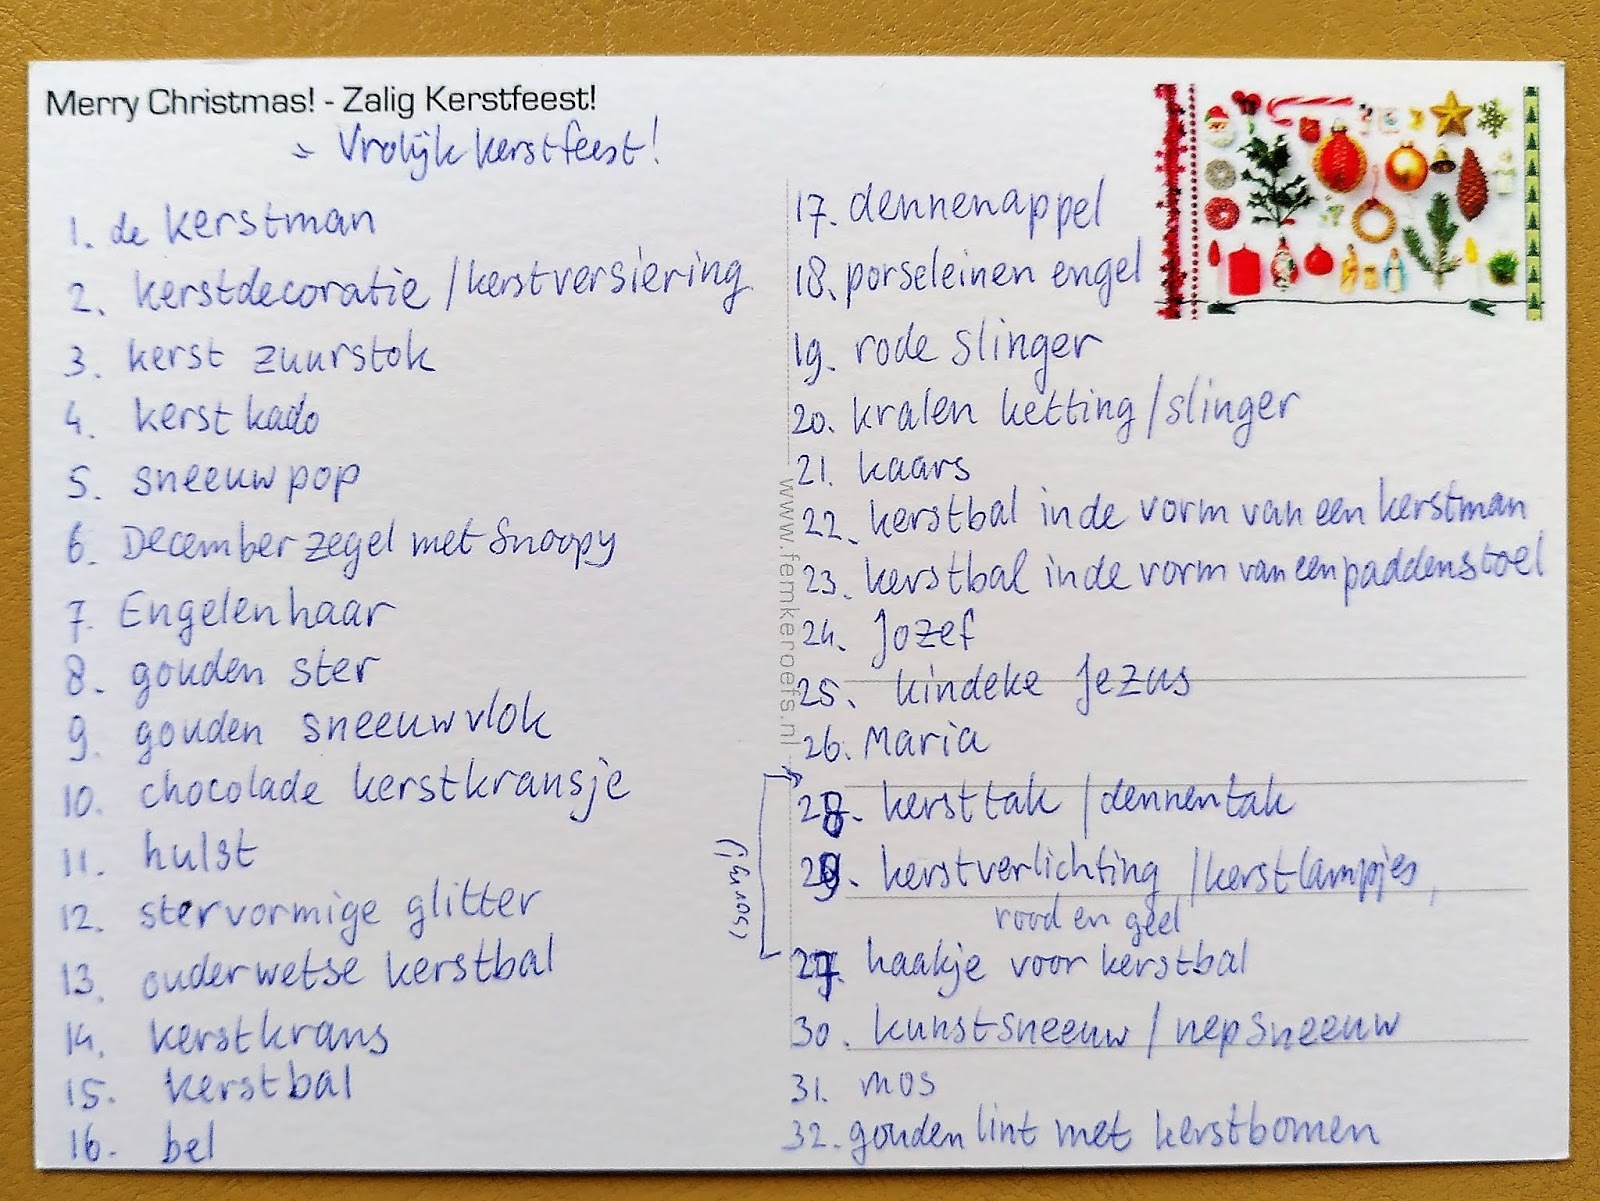 Merry Christmas! - Zalig Kerstfeest!
Vrolijk kerstfeest!
1. de Kerstman
2. kerstdecoratie / kerstversiering
3. kerst zuurstok
4. kerst kado
5. sneeuwpop
6. December zegel met Snoopy
7. Engelenhaar
8. gouden ster
9. gouden sneeuwvlok
10. chocolade kerstkransje
11. hulst
12. stervormige glitter
13. ouderwetse kerstbal
14. kerstkrans
15. kerstbal
16. bel
17. dennenappel
18. porseleinen engel
19. rode slinger
20. kralen ketting / slinger
21. kaars
22. kerstbal in de vorm van een kerstman
23. kerstbal in de vorm van een paddenstoel
24. Jozef
25. kindeke Jezus
26. Maria
28. kersttak / dennentak
29. kerstverlichting / kerstlampjes,
rood en geel
27. haakje voor kerstbal
(sorry!)
30. kunstsneeuw / nepsneeuw
31. mos
32. gouden lint met kerstbomen
www.femkeroefs.nl